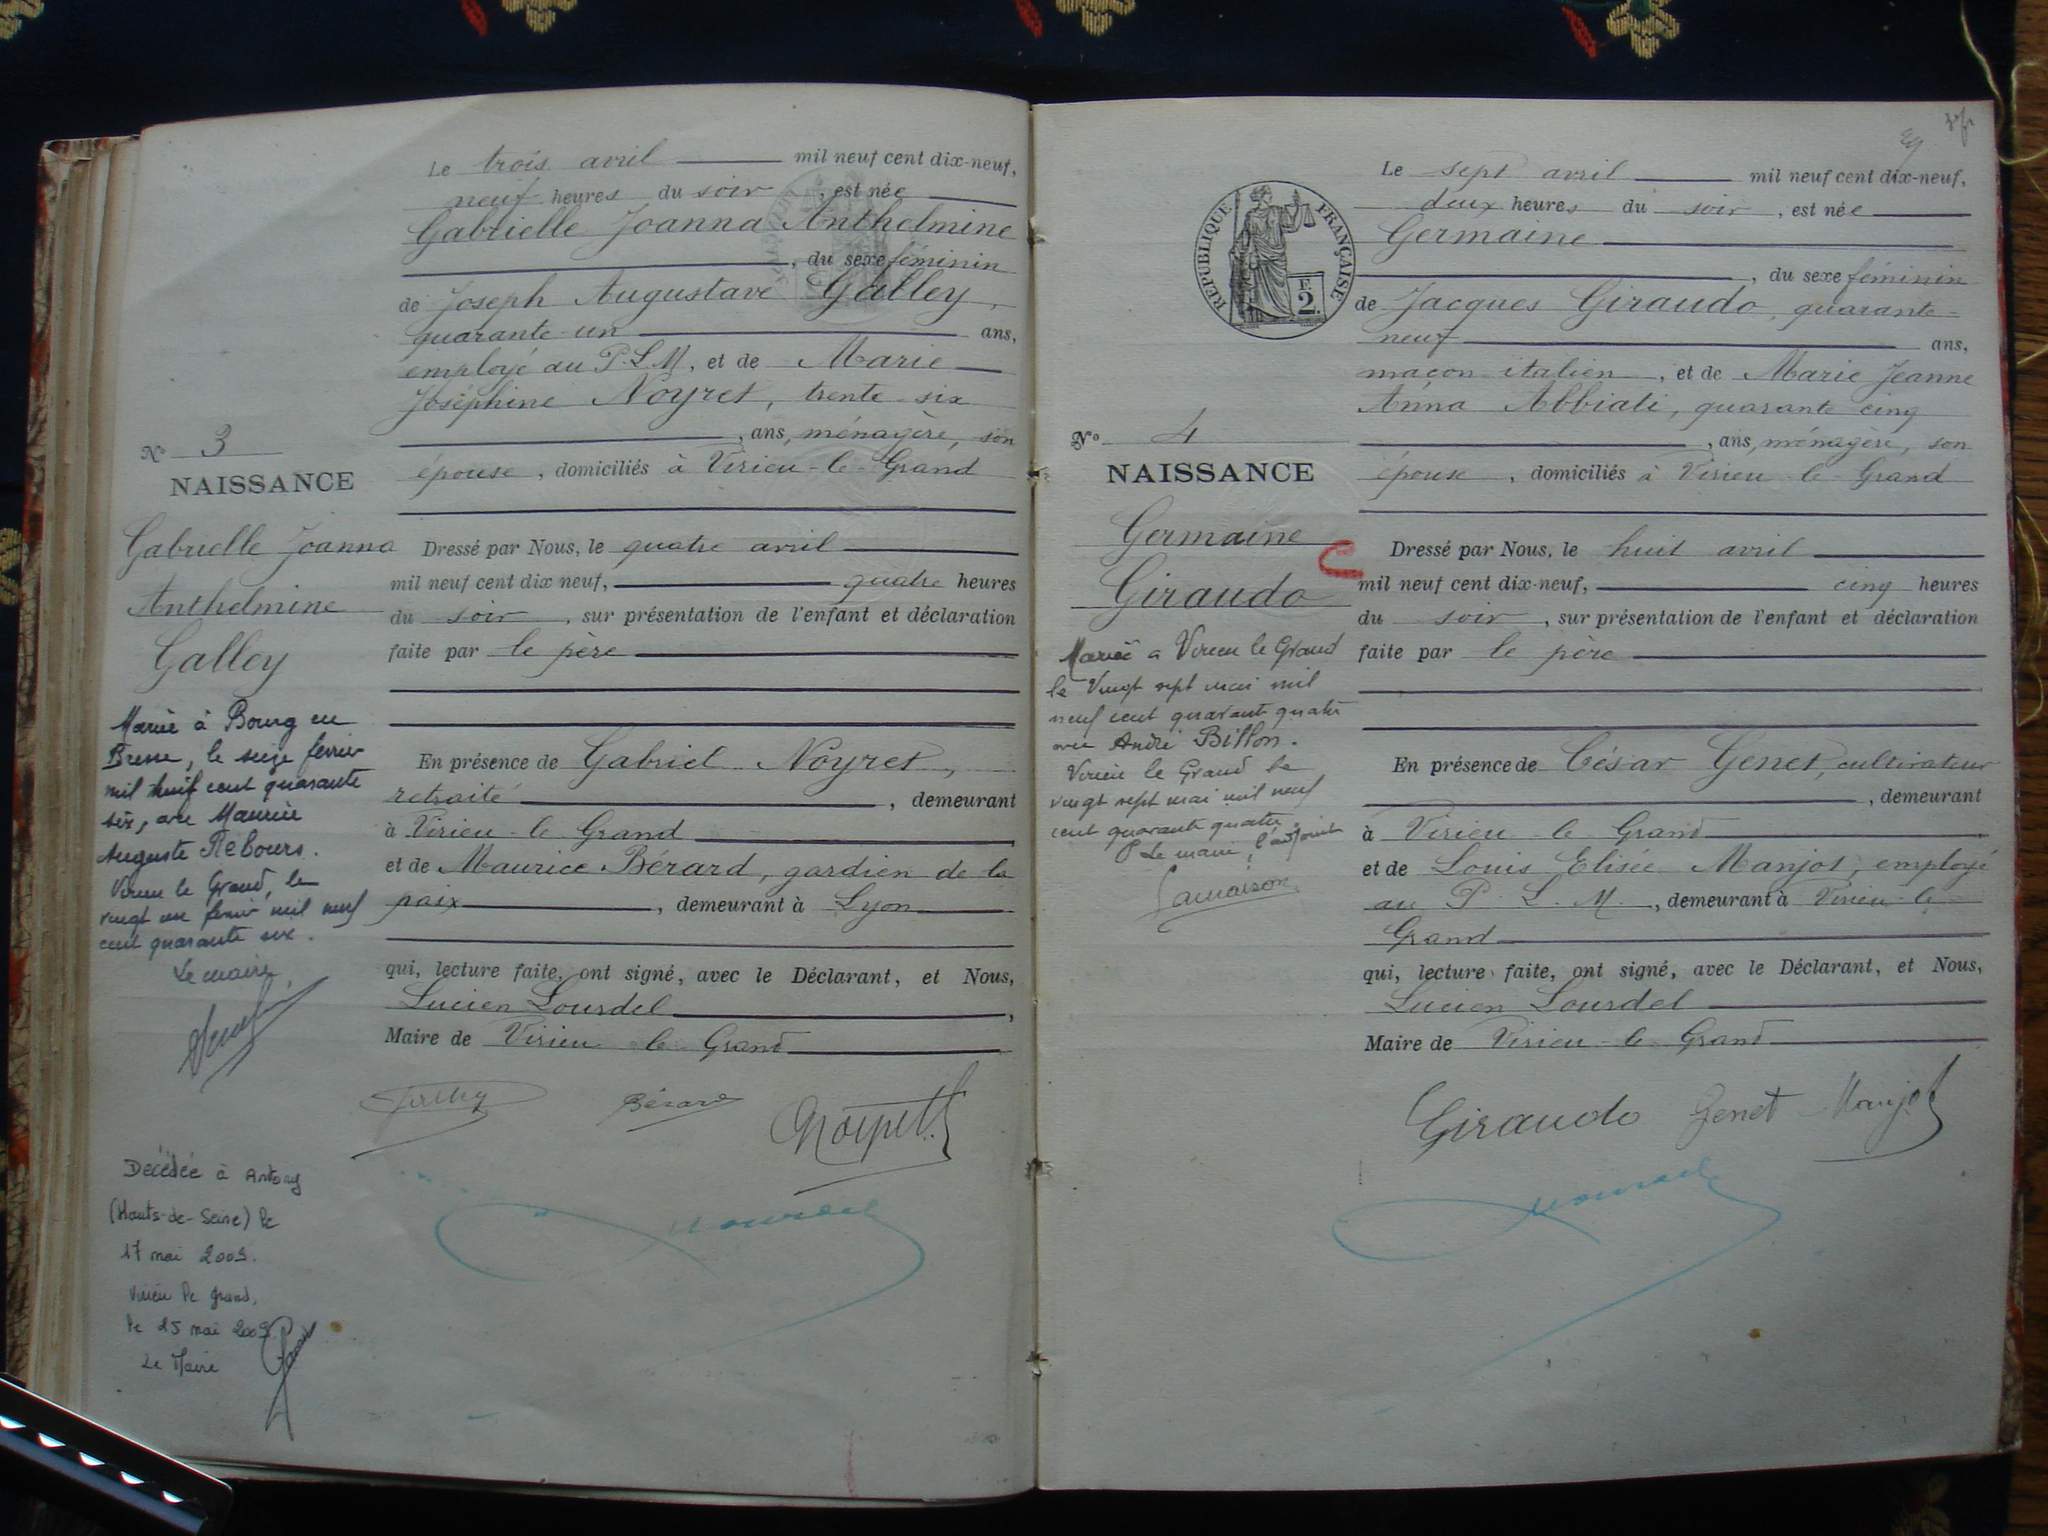 Le trois avril mil neuf cent dix-neuf,
neuf heures du soir, est née
Gabrielle Joanna Anthelmine
, du sexe féminin
de Joseph Augustave Galley,
quarante-un ans,
employé au P.L.M, et de Marie
Joséphine Noyret, trente-six
, ans, ménagère, son
épouse, domiciliés à Virieu-le-Grand
N° 3
NAISSANCE
Gabrielle Joanna
Anthelmine
Galley
Dressé par Nous, le quatre avril
mil neuf cent dix neuf, quatre heures
du soir, sur présentation de l'enfant et déclaration
faite par le père
En présence de Gabriel Noyret,
retraité, demeurant
à Virieu-le-Grand
et de Maurice Bérard, gardien de la
paix, demeurant à Lyon
qui, lecture faite, ont signé, avec le Déclarant, et Nous,
Lucien Lourdel,
Maire de Virieu-le-Grand
Mariée à Bourg en
Bresse, le seize février
mil huit cent quarante
six, avec Maurice
Auguste Rebours.
Virieu le Grand, le
vingt un février mil neuf
cent quarante six.
Le maire,
Galley Bérard Noyret
Décédée à Antony
(Hauts-de-Seine) le
17 mai 2009.
Virieu le Grand,
le 25 mai 2009
Le Maire
Le sept avril mil neuf cent dix-neuf,
deux heures du soir, est née
Germaine
, du sexe féminin
de Jacques Giraudo, quarante-
neuf ans,
maçon italien, et de Marie Jeanne
Anna Abbiati, quarante cinq
, ans, ménagère, son
épouse, domiciliés à Virieu-le-Grand
RÉPUBLIQUE FRANÇAISE
F.
2.
N° 4
NAISSANCE
Germaine
Giraudo
Dressé par Nous, le huit avril
mil neuf cent dix-neuf, cinq heures
du soir, sur présentation de l'enfant et déclaration
faite par le père
En présence de César Genet, cultivateur
, demeurant
à Virieu-le-Grand
et de Louis Elisée Manjot, employé
au P.L.M., demeurant à Virieu-le-
Grand
qui, lecture faite, ont signé, avec le Déclarant, et Nous,
Lucien Lourdel
Maire de Virieu-le-Grand
Mariée à Virieu le Grand
le Vingt sept mai mil
neuf cent quarante quatre
avec André Billon.
Virieu le Grand le
vingt sept mai mil neuf
cent quarante quatre.
P Le maire, l'adjoint
Lamaison
Giraudo Genet Manjot